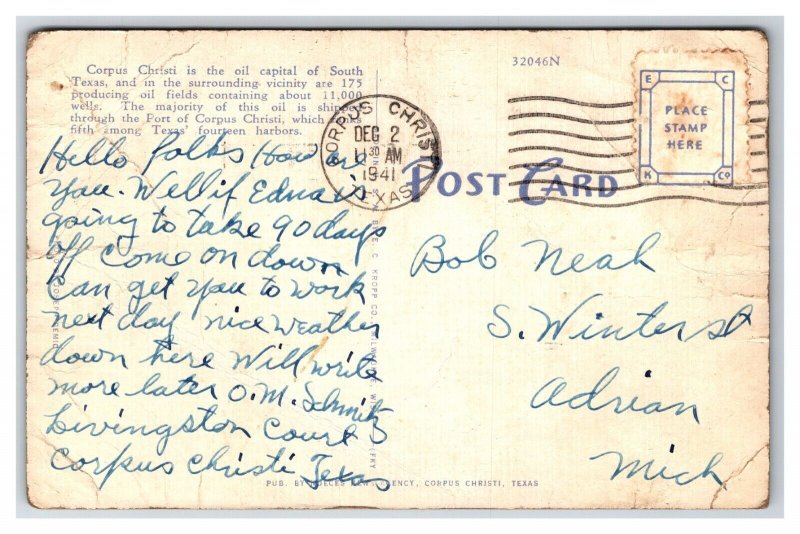 Corpus Christi is the oil capital of South
Texas, and in the surrounding vicinity are 175
producing oil fields containing about 11,000
wells. The majority of this oil is shipped
through the Port of Corpus Christi, which ranks
fifth among Texas' fourteen harbors.
32046N
CORPUS CHRISTI
DEC 2
11 30 AM
1941
TEXAS
E C
PLACE
STAMP
HERE
K Co
POST CARD
Hello folks How are
you. Well if Edna is
going to take 90 days
off come on down
Can get you to work
next day nice weather
down here Will write
more later O.M. Schmitz
Livingston Court
Corpus Christi Texas
Bob Neah
S. Winter st
Adrian
Mich
E. C. KROPP CO.
PUB. BY NUECES NEWS AGENCY, CORPUS CHRISTI, TEXAS